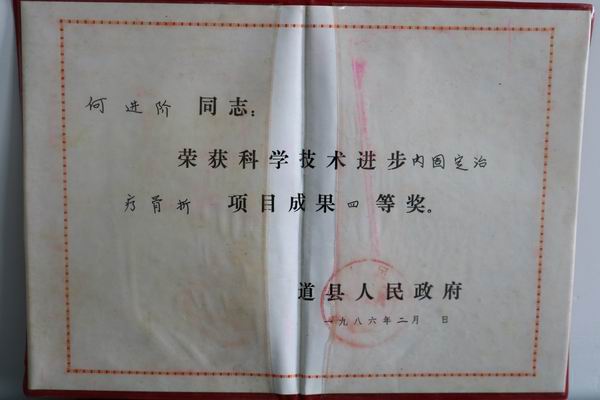 何进阶 同志:
荣获科学技术进步内固定治
疗骨折 项目成果四等奖。
道县人民政府
一九八六年二月 日